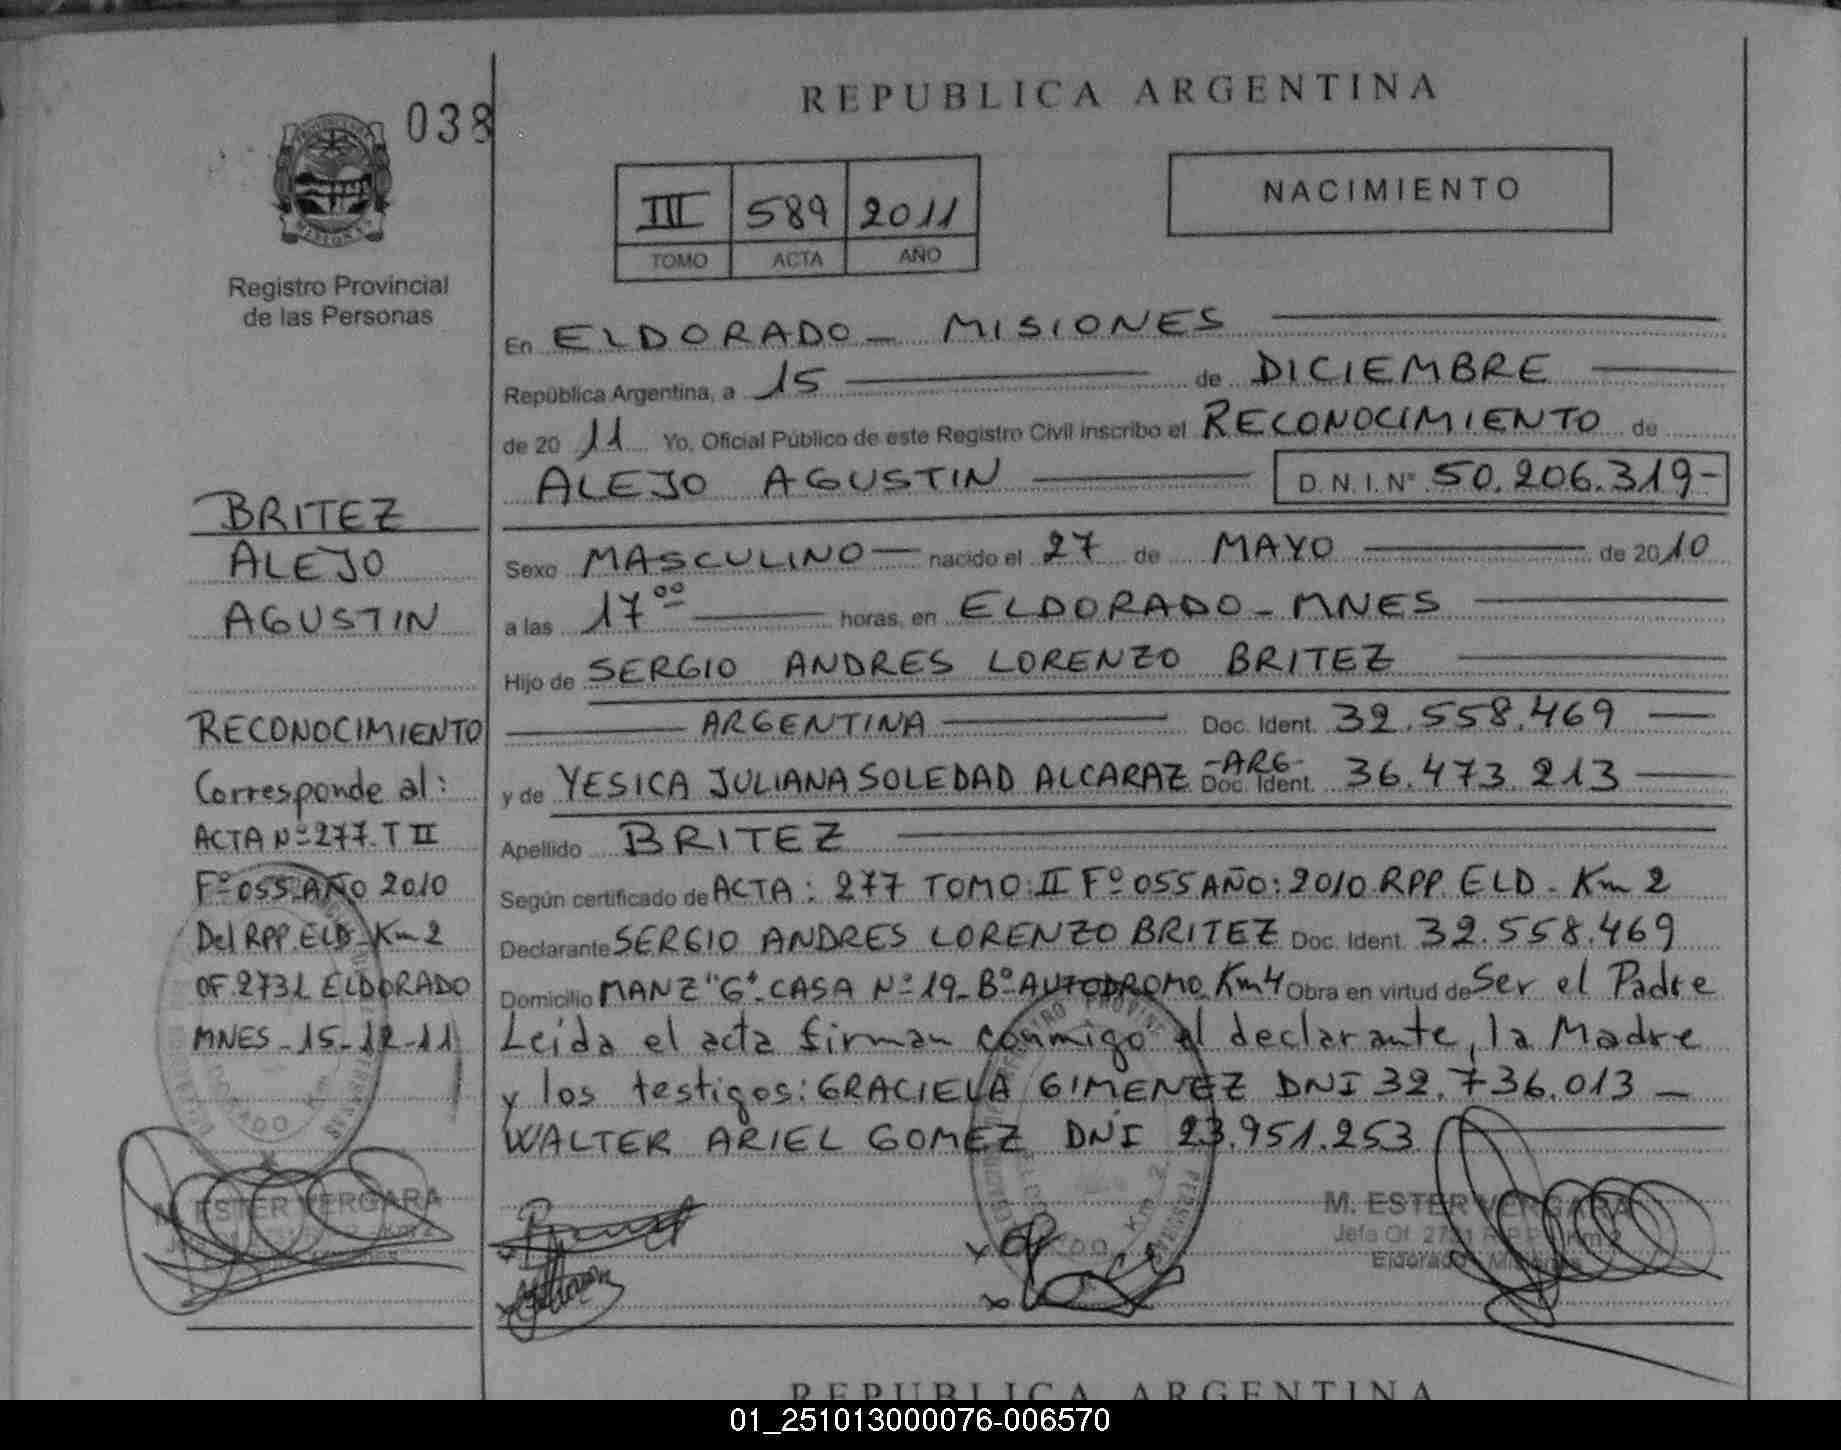 038
Registro Provincial
de las Personas
BRITEZ
ALEJO
AGUSTIN
RECONOCIMIENTO
Corresponde al:
ACTA Nº 277. T II
Fº 055 AÑO 2010
Del RPP. ELD - Km 2
OF. 2731 ELDORADO
MNES - 15-12-11
M. ESTER VERGARA
REPUBLICA ARGENTINA
III 589 2011
TOMO ACTA AÑO
NACIMIENTO
En ELDORADO - MISIONES
República Argentina, a 15 de DICIEMBRE
de 20 11 Yo, Oficial Público de este Registro Civil inscribo el RECONOCIMIENTO de
ALEJO AGUSTIN D.N.I. Nº 50.206.319-
Sexo MASCULINO — nacido el 27 de MAYO de 2010
a las 17 00 horas, en ELDORADO - MNES
Hijo de SERGIO ANDRES LORENZO BRITEZ
ARGENTINA Doc. Ident. 32.558.469
y de YESICA JULIANA SOLEDAD ALCARAZ -ARG- Doc. Ident. 36.473.213
Apellido BRITEZ
Según certificado de ACTA: 277 TOMO: II Fº 055 AÑO: 2010 RPP. ELD - Km 2
Declarante SERGIO ANDRES LORENZO BRITEZ Doc. Ident. 32.558.469
Domicilio MANZ "G". CASA Nº 19 - Bº AUTODROMO Km 4 Obra en virtud de Ser el Padre
Leida el acta firman conmigo el declarante, la Madre
y los testigos: GRACIELA GIMENEZ DNI 32.736.013 -
WALTER ARIEL GOMEZ DNI 23.951.253
M. ESTER VERGARA
Jefa Of. 2731 R.P.P. Km 2
Eldorado - Misiones
REPUBLICA ARGENTINA
01_251013000076-006570